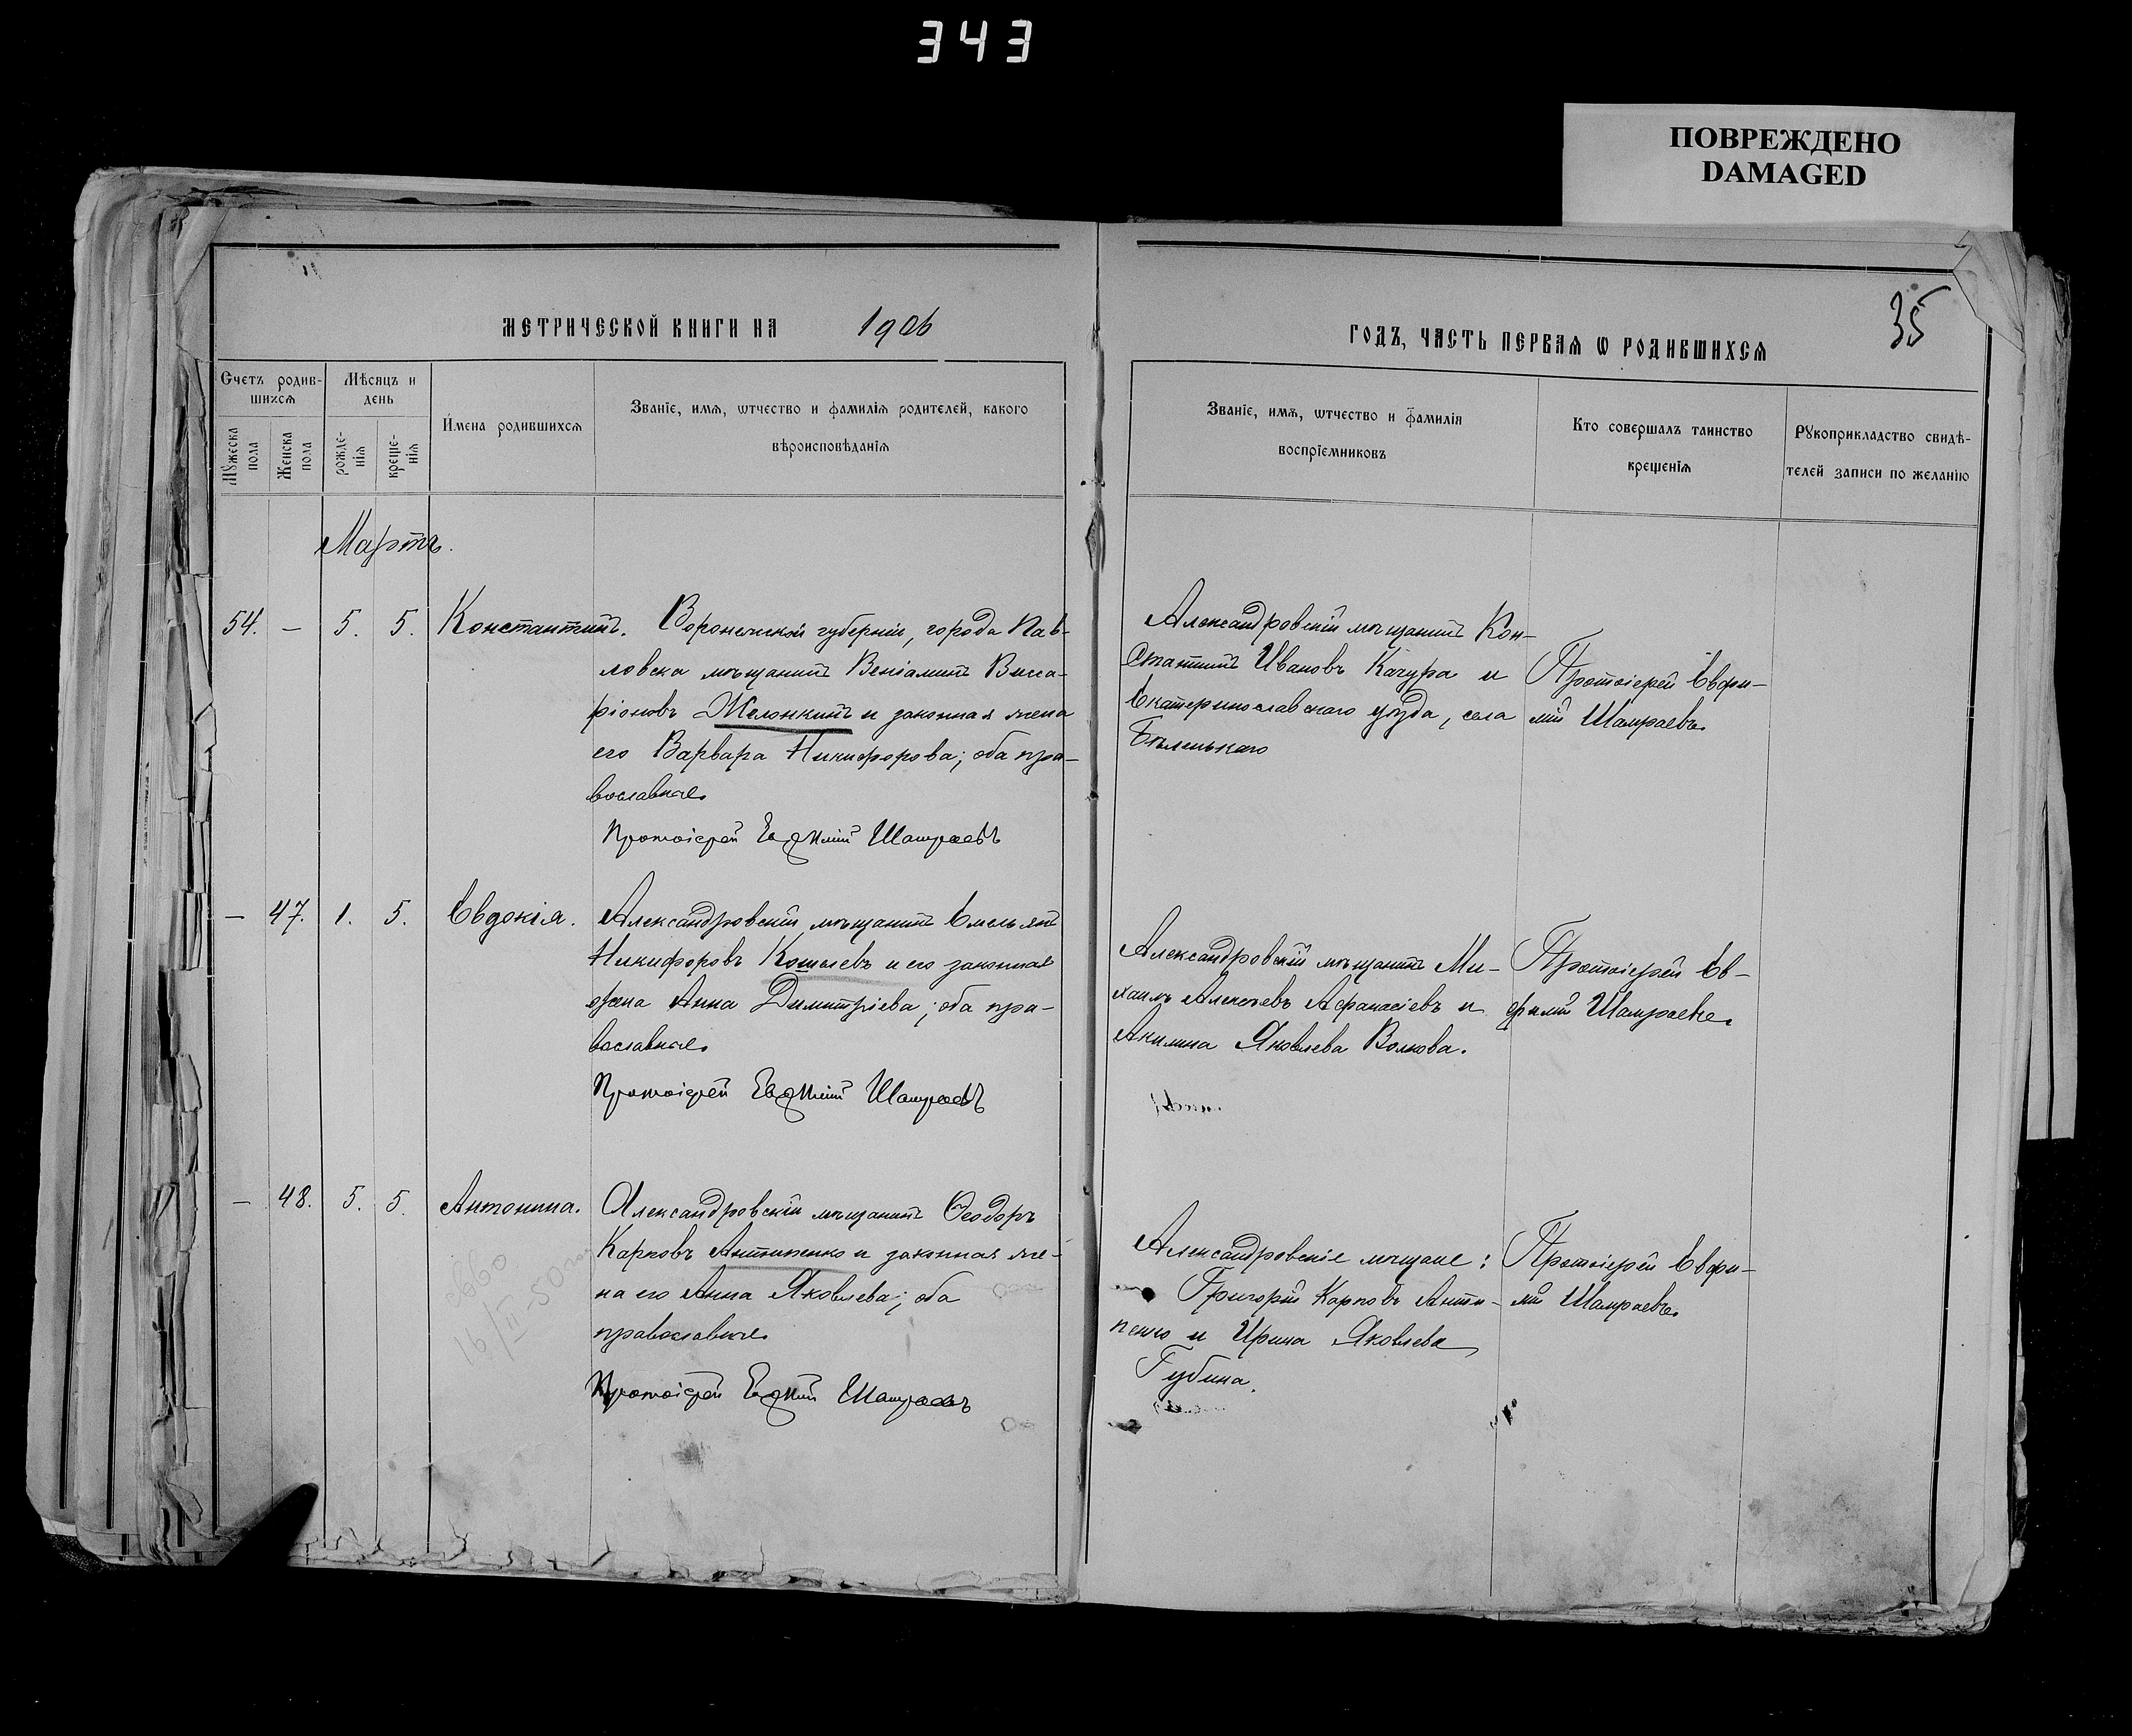 343
ПОВРЕЖДЕНО
DAMAGED
МЕТРИЧЕСКОЙ КНИГИ НА 1906
ГОДЪ, ЧАСТЬ ПЕРВАЯ Ѡ РОДИВШИХСЯ
35
Счетъ родив-
шихся
Мѣсяцъ и
день
Мужеска
пола
Женска
пола
рожде-
нія
креще-
нія
Имена родившихся
Званіе, имя, ѡтчество и фамилія родителей, какого
вѣроисповѣданія
Званіе, имя, ѡтчество и фамилія
воспріемниковъ
Кто совершалъ таинство
крещенія
Рукоприкладство свидѣ-
телей записи по желанію
Мартъ.
54. — 5. 5. Константинъ.
Воронежской губерніи, города Пав-
ловска мѣщанинъ Веніаминъ Висса-
ріоновъ Желонкинъ и законная жена
его Варвара Никифорова; оба пра-
вославные.
Протоіерей Евфимій Шамраевъ
Александровскій мѣщанинъ Кон-
стантинъ Ивановъ Качура и
Екатеринославскаго уѣзда, села
Бѣленькаго
Протоіерей Евфи-
мій Шамраевъ.
— 47. 1. 5. Евдокія.
Александровскій мѣщанинъ Емельянъ
Никифоровъ Кошелевъ и его законная
жена Анна Димитріева; оба пра-
вославные.
Протоіерей Евфимій Шамраевъ
Александровскій мѣщанинъ Ми-
хаилъ Алексѣевъ Афанасіевъ и
Акилина Яковлева Волкова.
Протоіерей Ев-
фимій Шамраевъ.
— 48. 5. 5. Антонина.
Александровскій мѣщанинъ Ѳеодоръ
Карповъ Антипенко и законная же-
на его Анна Яковлева; оба
православные.
Протоіерей Евфимій Шамраевъ
16/II-50
Александровскіе мѣщане:
Григорій Карповъ Анти-
пенко и Ирина Яковлева
Губина.
Протоіерей Евфи-
мій Шамраевъ.